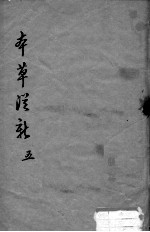 本草從新 五